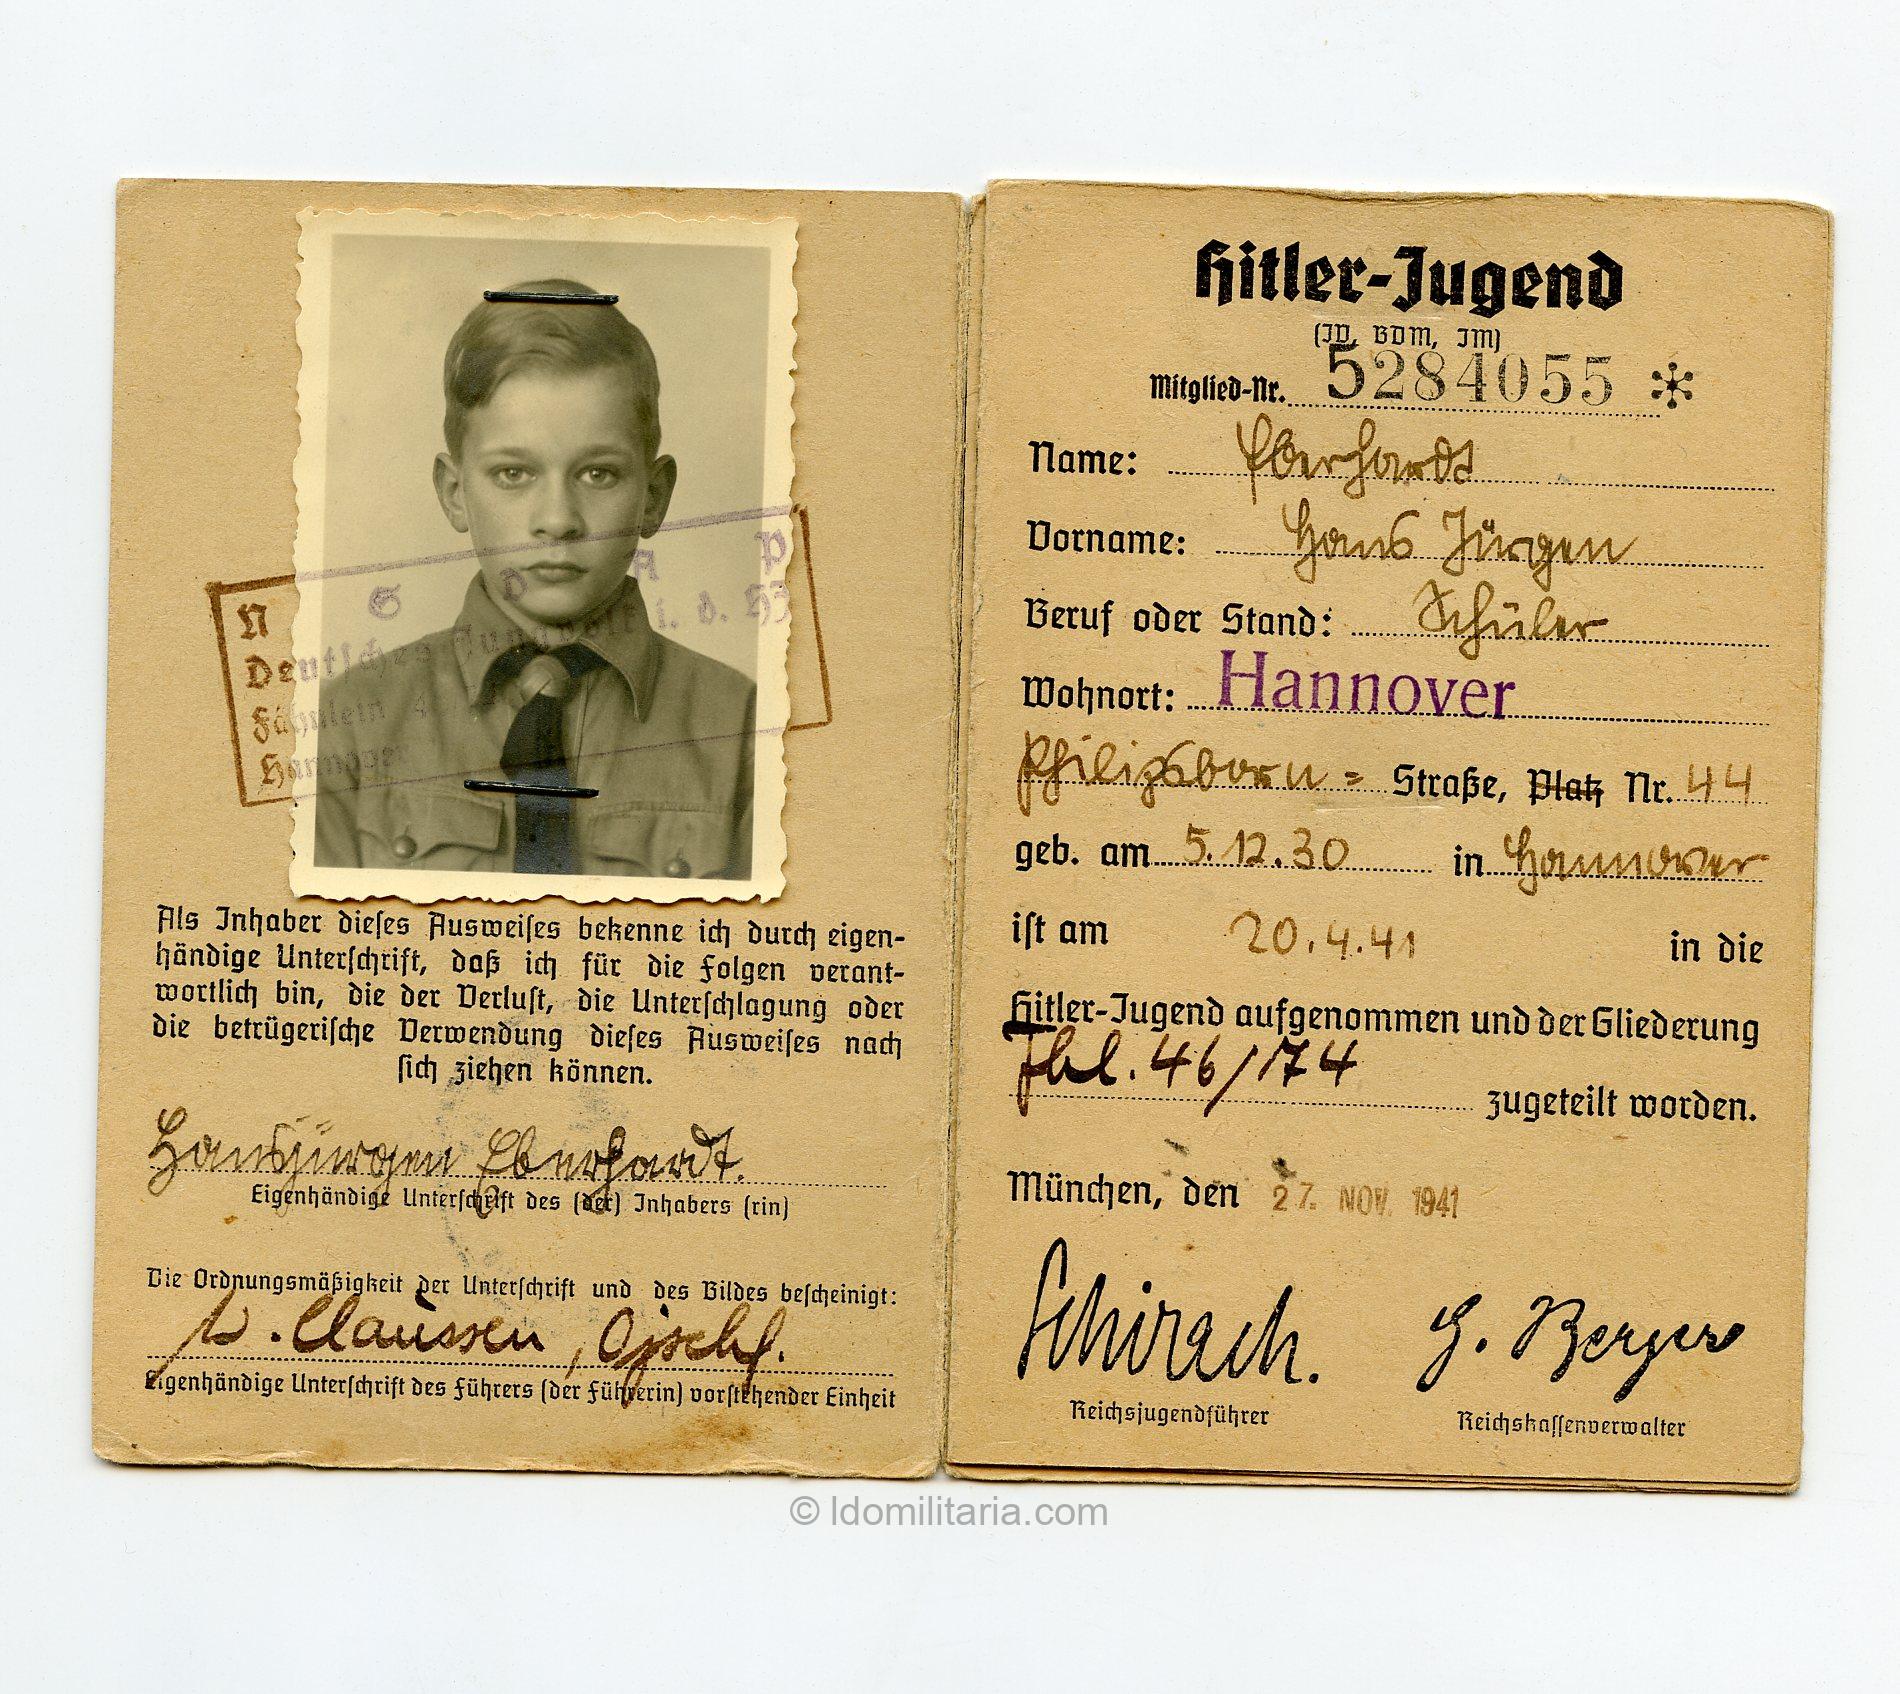 N S D A P
Deutsches Jungvolk i. d. HJ
Fähnlein 4
Hannover
Als Inhaber dieses Ausweises bekenne ich durch eigen-
händige Unterschrift, daß ich für die Folgen verant-
wortlich bin, die der Verlust, die Unterschlagung oder
die betrügerische Verwendung dieses Ausweises nach
sich ziehen können.
Hansjürgen Eberhardt.
Eigenhändige Unterschrift des (der) Inhabers (rin)
Die Ordnungsmäßigkeit der Unterschrift und des Bildes bescheinigt:
Claussen
Eigenhändige Unterschrift des Führers (der Führerin) vorstehender Einheit
Hitler-Jugend
(JV, BDM, JM)
Mitglied-Nr. 5284055 *
Name: Eberhardt
Vorname: Hans Jürgen
Beruf oder Stand: Schüler
Wohnort: Hannover
Philipsborn- Straße, Platz Nr. 44
geb. am 5.12.30 in Hannover
ist am 20.4.41 in die
Hitler-Jugend aufgenommen und der Gliederung
Fhl. 46/174 zugeteilt worden.
München, den 27. NOV. 1941
Schirach. G. Berger
Reichsjugendführer Reichskassenverwalter
© ldomilitaria.com